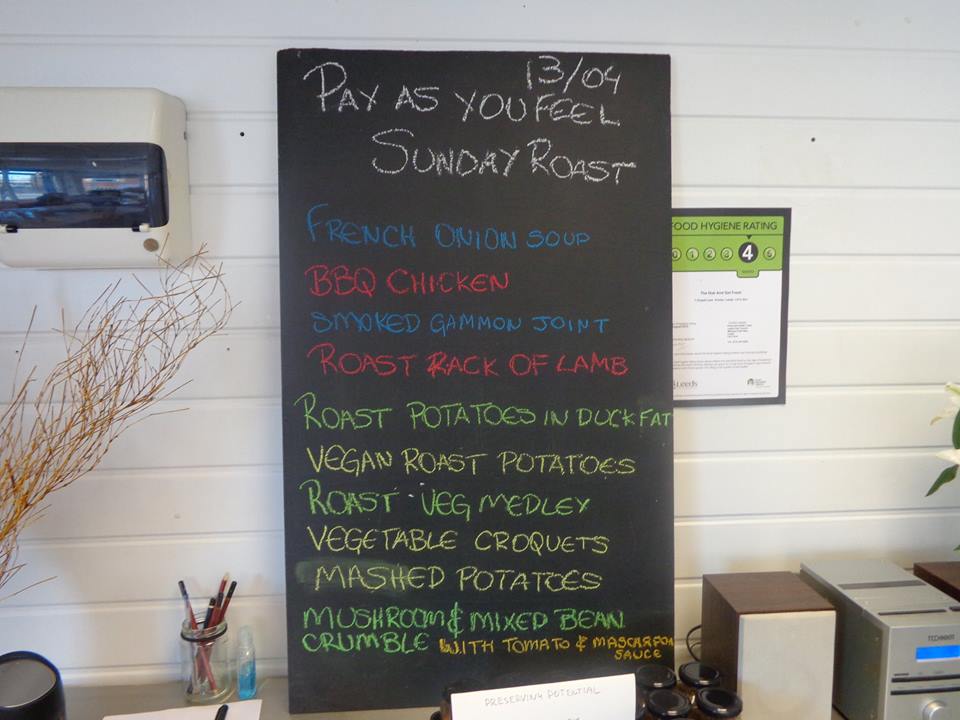 13/04
PAY AS YOU FEEL
SUNDAY ROAST
FRENCH ONION SOUP
BBQ CHICKEN
SMOKED GAMMON JOINT
ROAST RACK OF LAMB
ROAST POTATOES IN DUCK FAT
VEGAN ROAST POTATOES
ROAST VEG MEDLEY
VEGETABLE CROQUETS
MASHED POTATOES
MUSHROOM & MIXED BEAN
CRUMBLE WITH TOMATO & MASCARPON
SAUCE
FOOD HYGIENE RATING
0 1 2 3 4 5
Leeds
PRESERVING POTENTIAL
TECHNICS